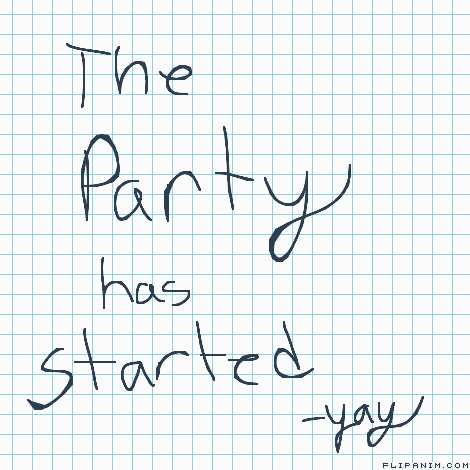 The
Party
has
started
-yay
FLIPANIM.COM